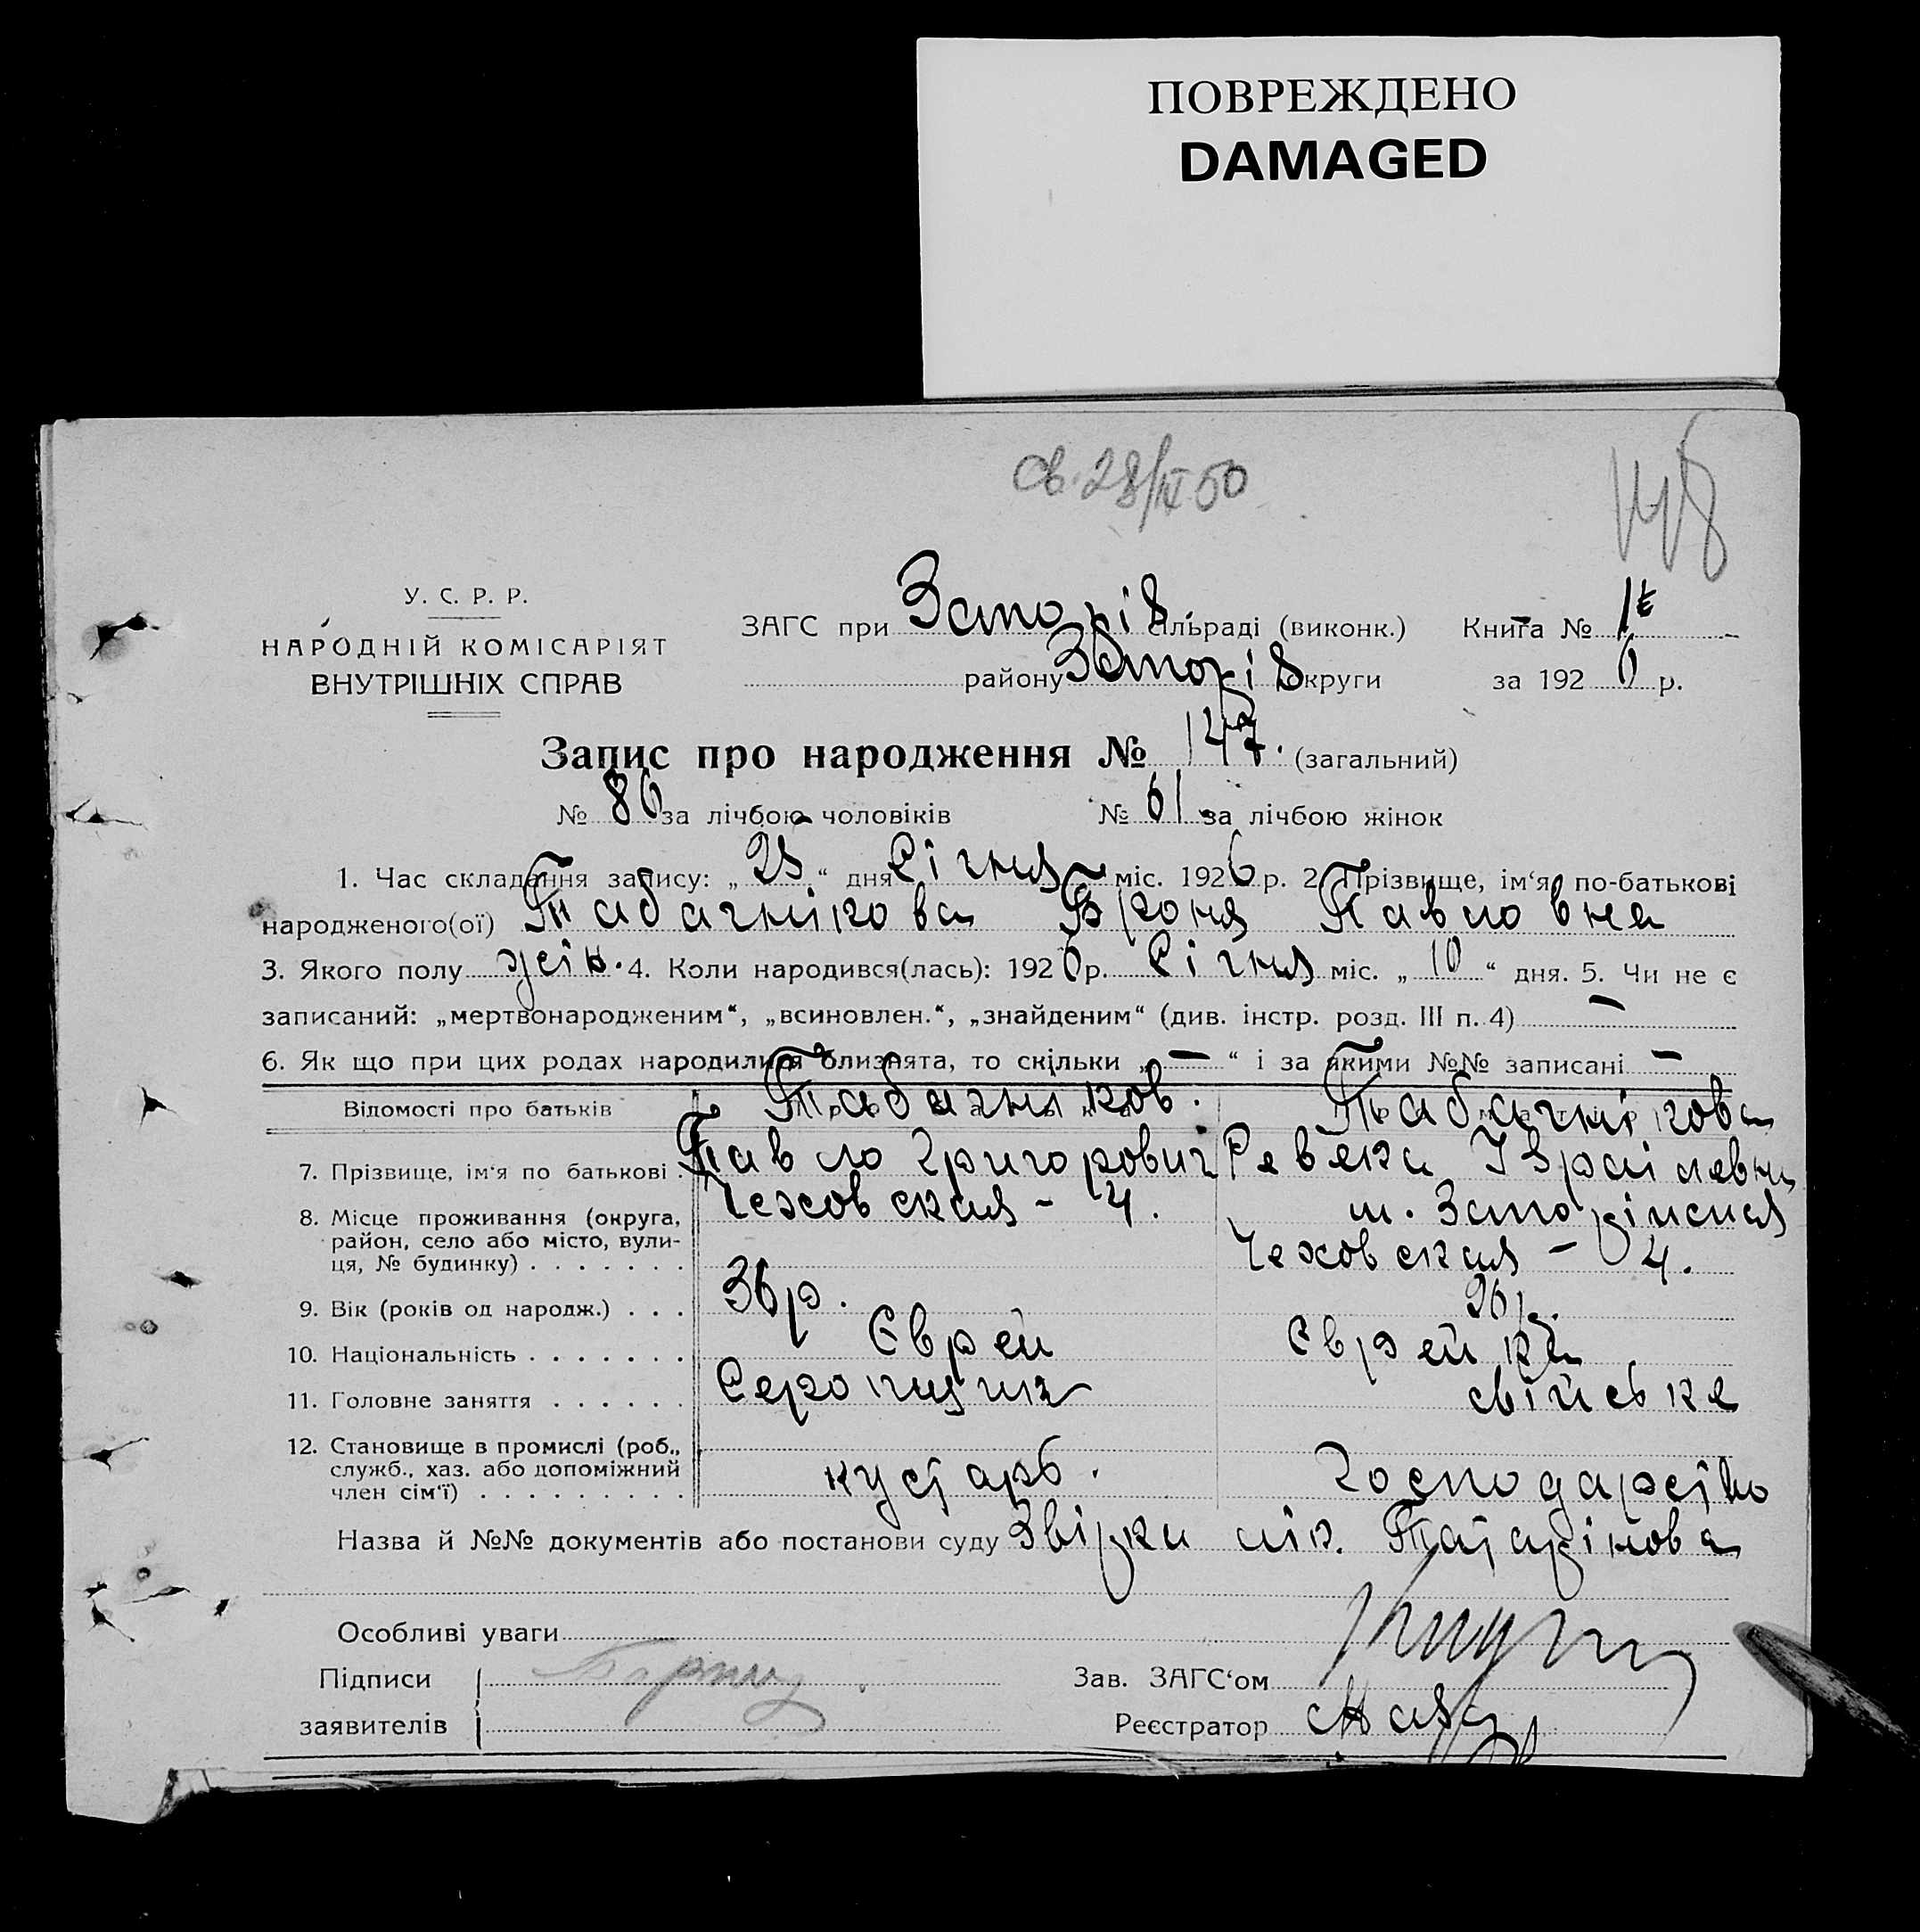 ПОВРЕЖДЕНО
DAMAGED
Св. 28/IV 50
148
У. С. Р. Р.
НАРОДНІЙ КОМІСАРІЯТ
ВНУТРІШНІХ СПРАВ
ЗАГС при Запоріз. сільраді (виконк.) Книга №
району Запоріз округи за 1926 р.
Запис про народження № 147. (загальний)
№ 86 за лічбою чоловіків № 61 за лічбою жінок
1. Час складання запису: „ 25 “ дня Січня міс. 1926 р. 2. Прізвище, ім'я, по-батькові
народженого(ої) Табачнікова Броня Павловна
3. Якого полу жін. 4. Коли народився(лась): 1926 р. Січня міс. „ 10 “ дня. 5. Чи не є
записаний: „мертвонародженим“, „всиновлен.“, „знайденим“ (див. інстр. розд. III п. 4) —
6. Як що при цих родах народилися близнята, то скільки „ — “ і за якими №№ записані —
Відомості про батьків Табачников. Табачнікова
7. Прізвище, ім'я по батькові . Павло Григорович Ревека Ізраілевна
8. Місце проживання (округа, Чеховская - 4. м.
район, село або місто, вули- Чеховская - 4.
ця, № будинку) . . . . . . .
9. Вік (років од народж.) . . . 36 р. 26 р.
10. Національність . . . . . . . Єврей Єврейка
11. Головне заняття . . . . . . свійське
12. Становище в промислі (роб.,
служб., хаз. або допоміжний кустарь. господарство
член сім'ї) . . . . . . . . .
Назва й №№ документів або постанови суду Звізка лік. Татарінова
Особливі уваги
Підписи
Зав. ЗАГС'ом
заявителів
Реєстратор